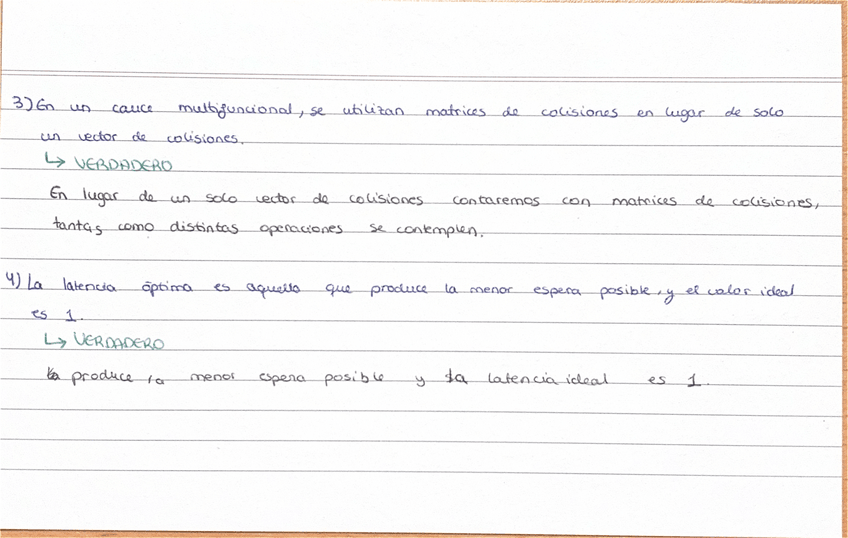 3) En un cauce multifuncional, se utilizan matrices de colisiones en lugar de solo
un vector de colisiones.
↳ VERDADERO
En lugar de un solo vector de colisiones contaremos con matrices de colisiones,
tantas como distintas operaciones se contemplen.
4) La latencia óptima es aquella que produce la menor espera posible, y el valor ideal
es 1.
↳ VERDADERO
produce la menor espera posible y la latencia ideal es 1.